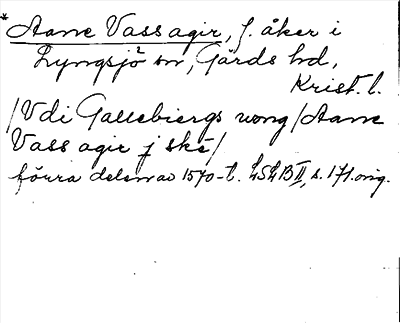 * Aane Vass agir, f. åker i
Lyngsjö sn, Gärds hd,
Krist. l.
/Vdi Gallebiergs wong/Aane
Vass agir j ske/
förra delen av 1570-t. LSLB II, s. 171. orig.